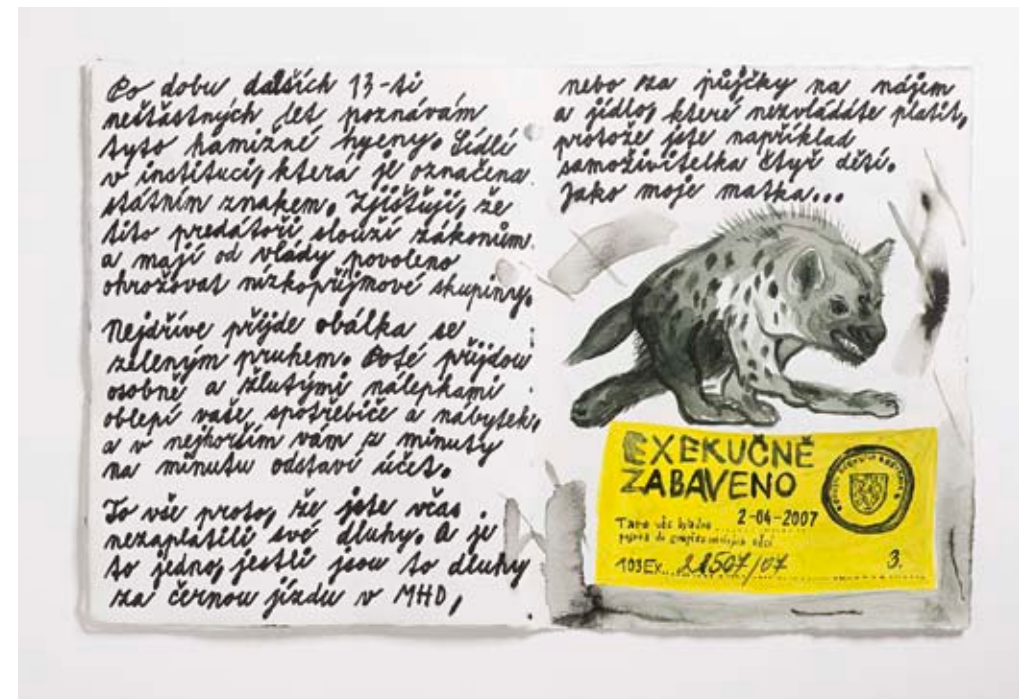 Po dobu dalších 13-ti
nešťastných let poznávám
tyto hamižné hyeny. Sídlí
v instituci, která je označena
státním znakem. Zjišťuji, že
tito predátoři slouží zákonům
a mají od vlády povoleno
ohrožovat nízkopříjmové skupiny.
Nejdříve přijde obálka se
zeleným pruhem. Poté přijdou
osobně a žlutými nálepkami
oblepí vaše spotřebiče a nábytek,
a v nejhorším vám z minuty
na minutu odstaví účet.
To vše proto, že jste včas
nezaplatili své dluhy. A je
to jedno, jestli jsou to dluhy
za černou jízdu v MHD,
nebo za půjčky na nájem
a jídlo, které nezvládáte platit,
protože jste například
samoživitelka čtyř dětí.
Jako moje matka...
EXEKUČNĚ
ZABAVENO
Tato věc byla
2-04-2007
do věcí
103Ex. 21507/07
3.